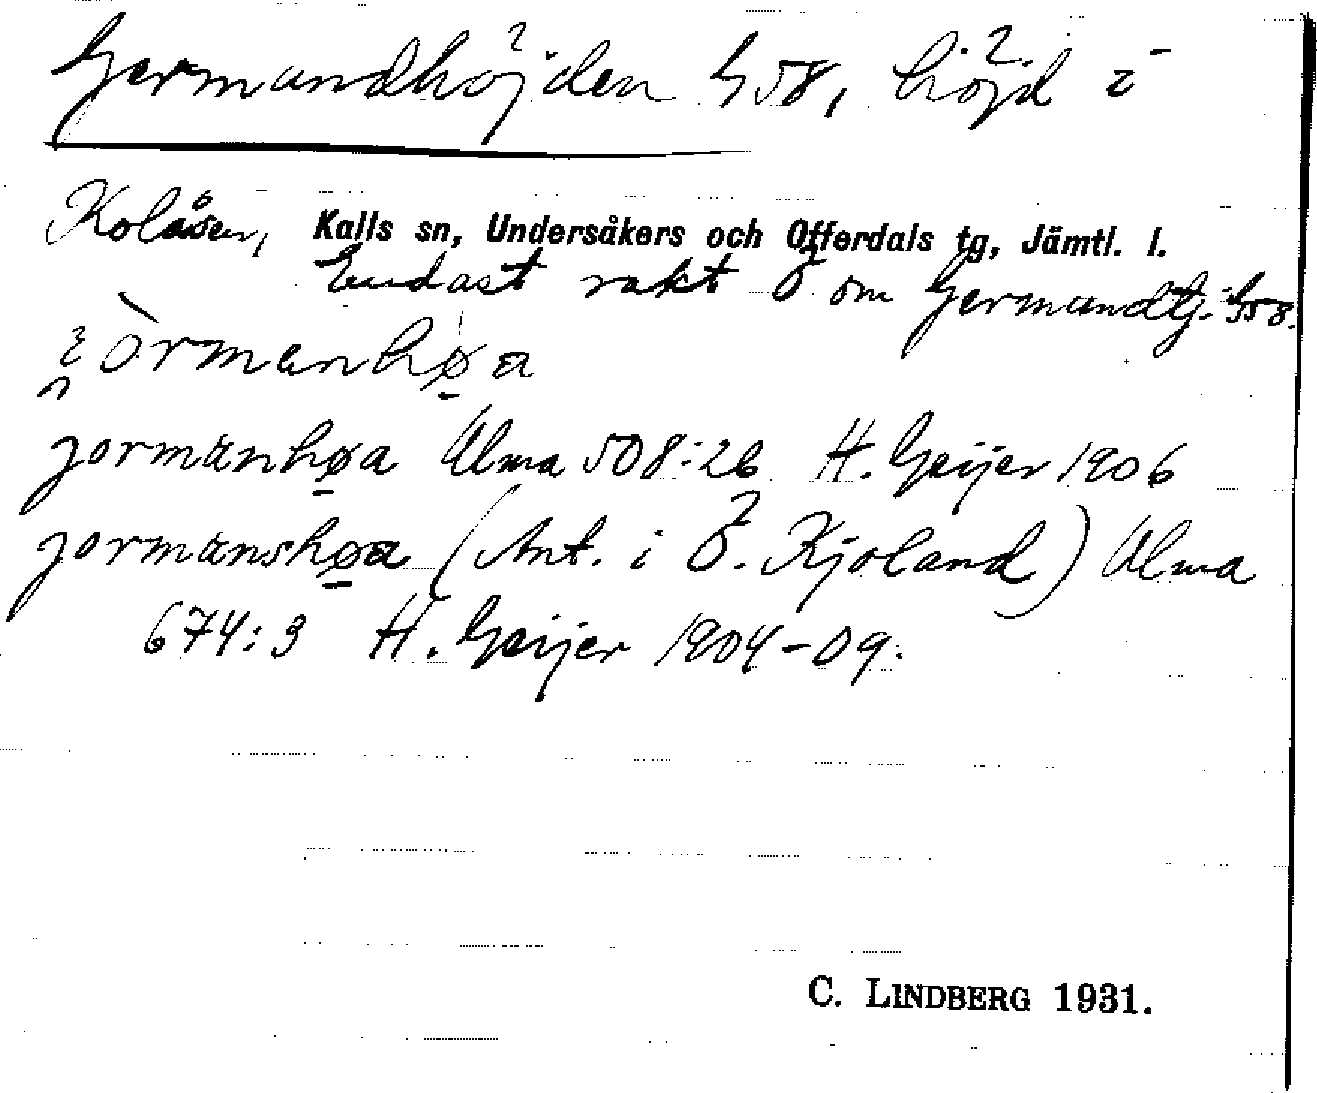 Germundhöjden G58, höjd i
Kolåsen, Kalls sn, Undersåkers och Offerdals tg, Jämtl. l.
Endast rakt Ö om Germundtj. G58.
jormanhøa Ulma 508:26 H. Geijer 1906
jormanshøa (Ant. i Ö. Kjoland) Ulma
674:3 H. Geijer 1904-09.
C. LINDBERG 1931.